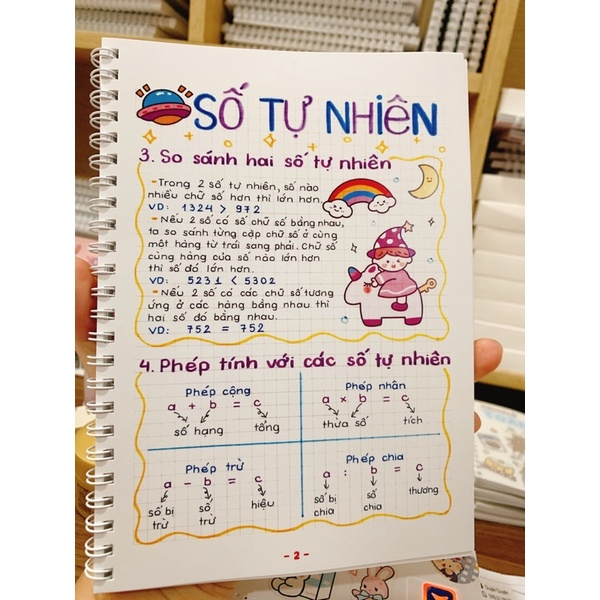 SỐ TỰ NHIÊN
3. So sánh hai số tự nhiên
- Trong 2 số tự nhiên, số nào
nhiều chữ số hơn thì lớn hơn.
VD: 1324 > 972
- Nếu 2 số có số chữ số bằng nhau,
ta so sánh từng cặp chữ số ở cùng
một hàng từ trái sang phải. Chữ số
cùng hàng của số nào lớn hơn
thì số đó lớn hơn.
VD: 5231 < 5302
- Nếu 2 số có các chữ số tương
ứng ở các hàng bằng nhau thì
hai số đó bằng nhau.
VD: 752 = 752
4. Phép tính với các số tự nhiên
Phép cộng
a + b = c
số hạng tổng
Phép nhân
a x b = c
thừa số tích
Phép trừ
a - b = c
số bị trừ
số trừ
hiệu
Phép chia
a : b = c
số bị chia
số chia
thương
- 2 -